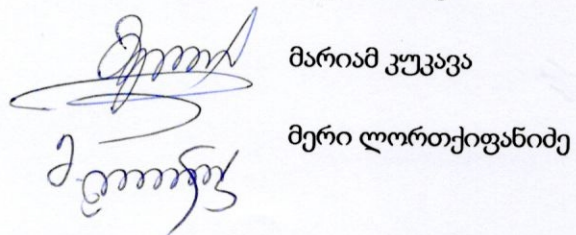 მარიამ კუკავა
მერი ლორთქიფანიძე